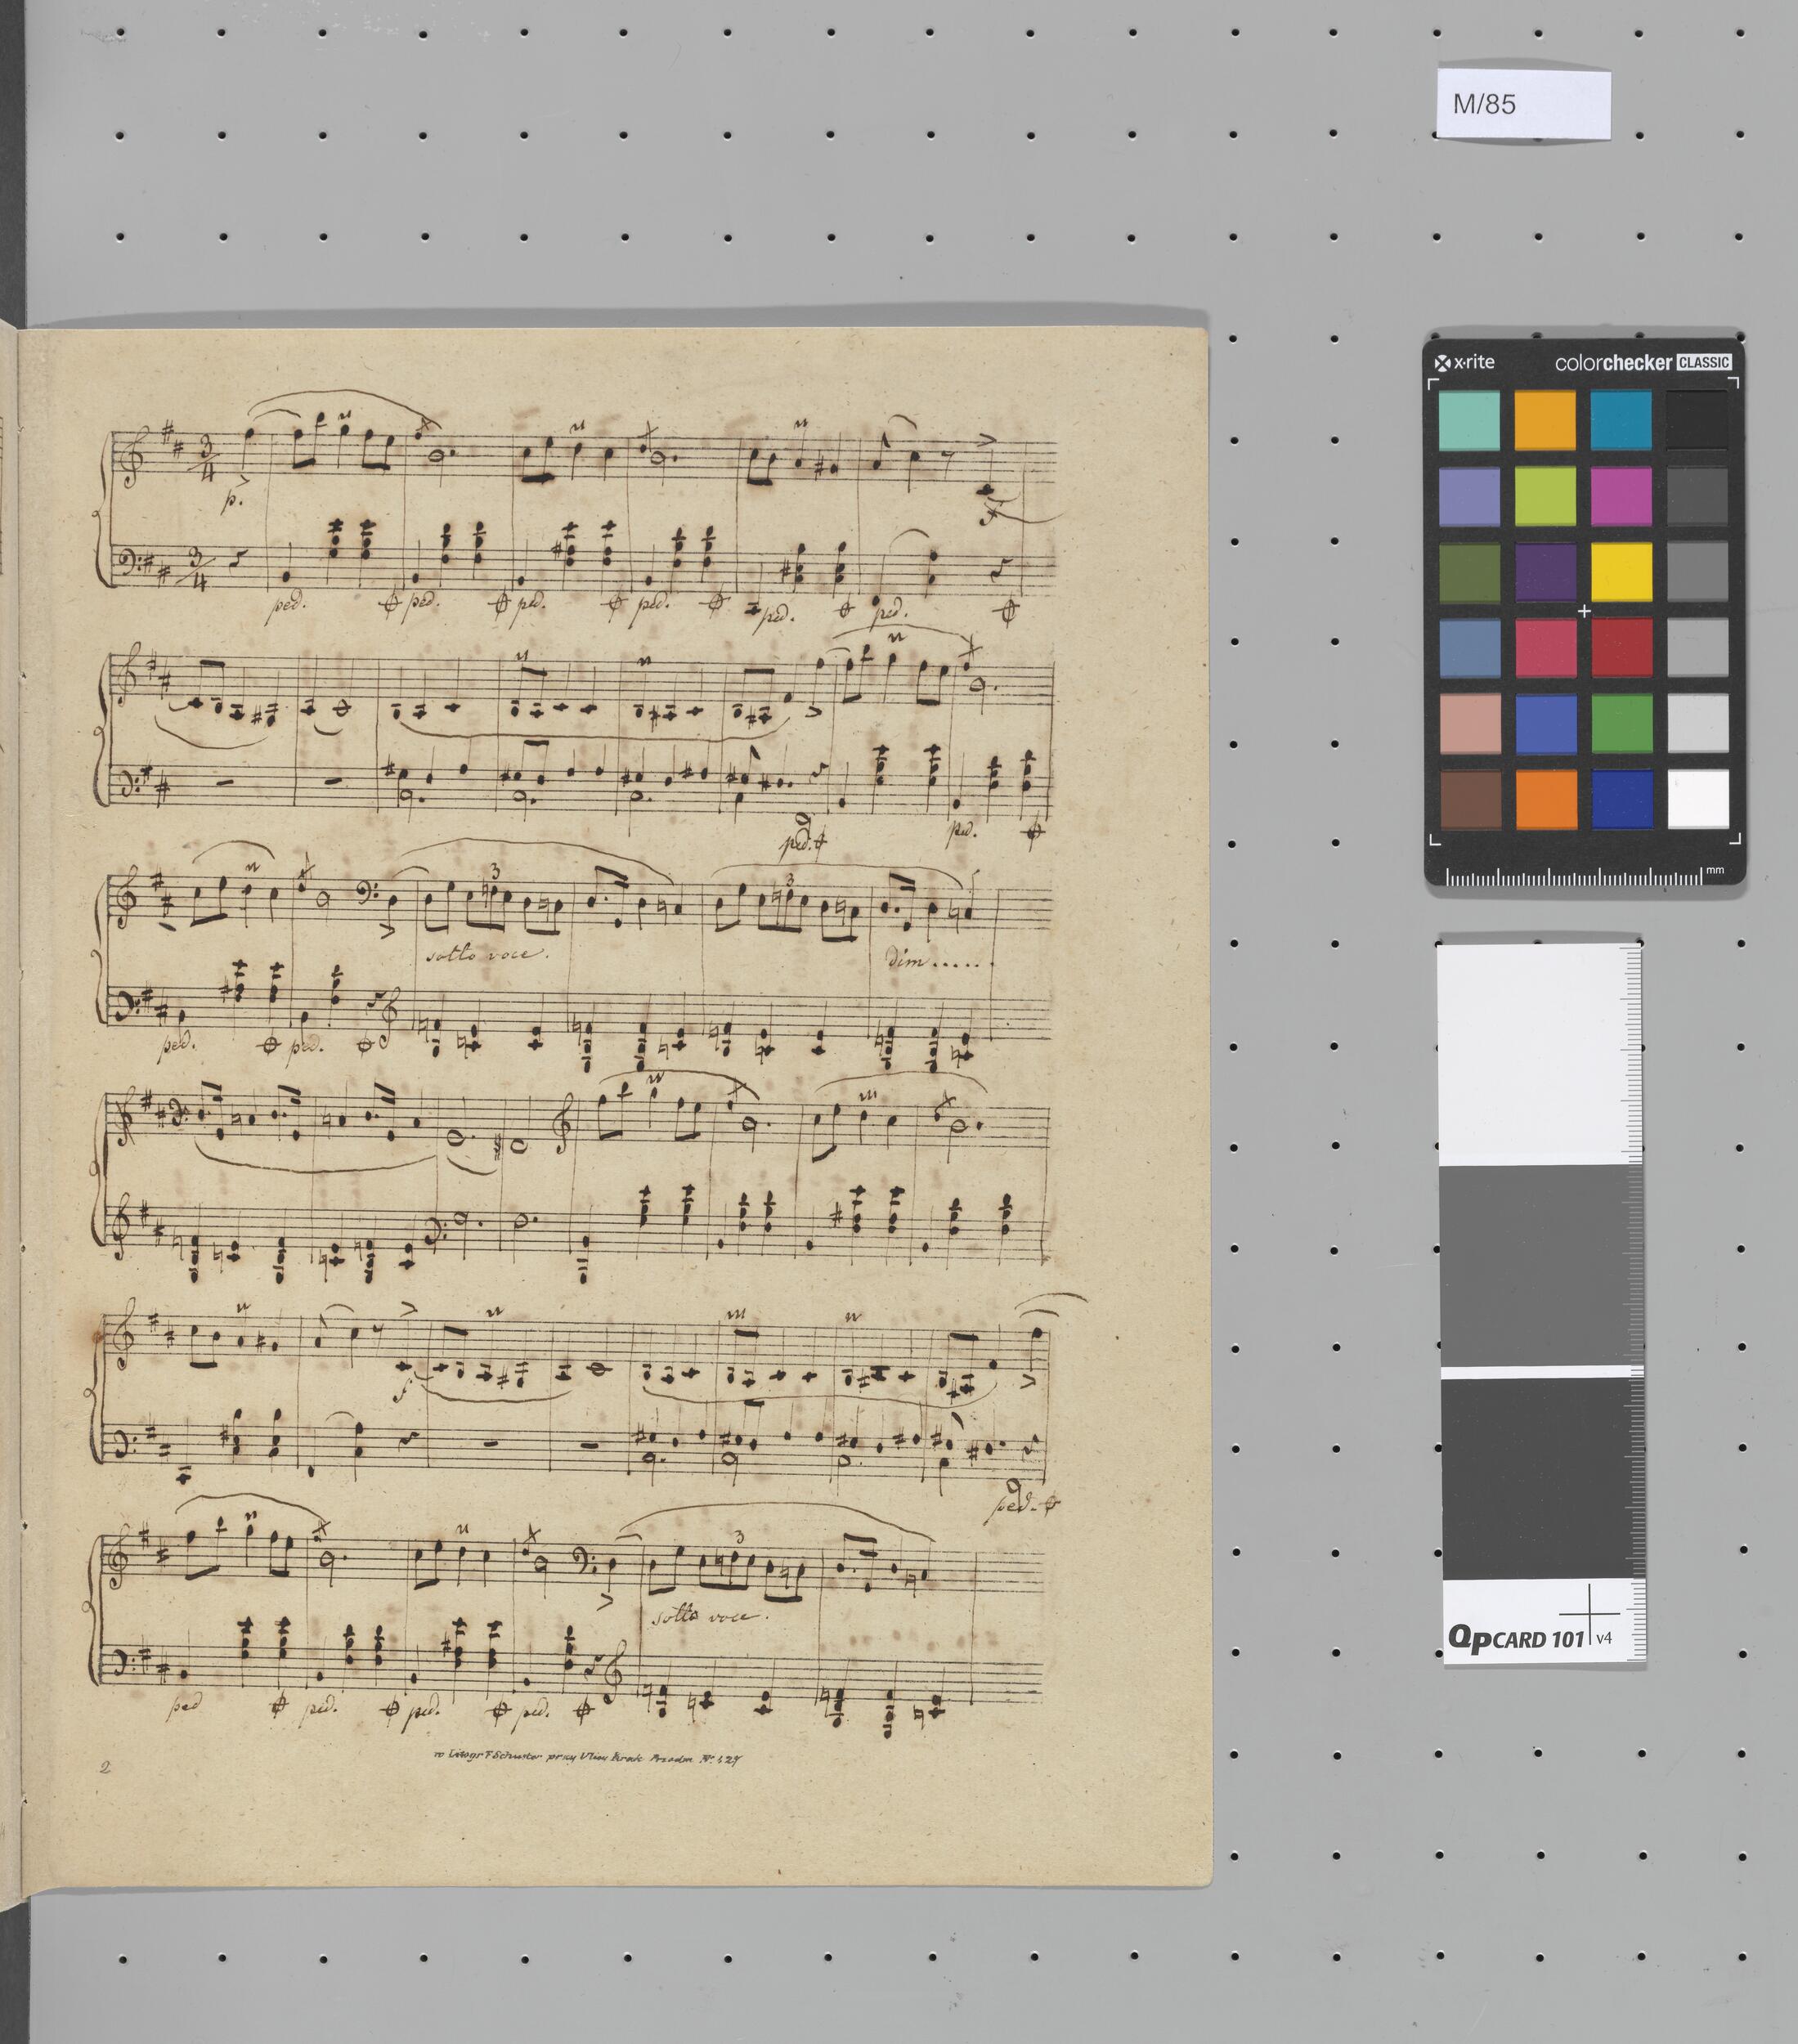 M/85
x·rite colorchecker CLASSIC
3/4 p.
3/4
ped. ped. ped. ped. ped. ped.
ped. ped.
3 3
sotto voce. dim.....
ped. ped.
mm
f
ped.
3
sotto voce.
ped ped. ped. ped.
w Litogr F Schuster przy Ulicy Krak Przedm No. 427
2
QpCARD 101 v4